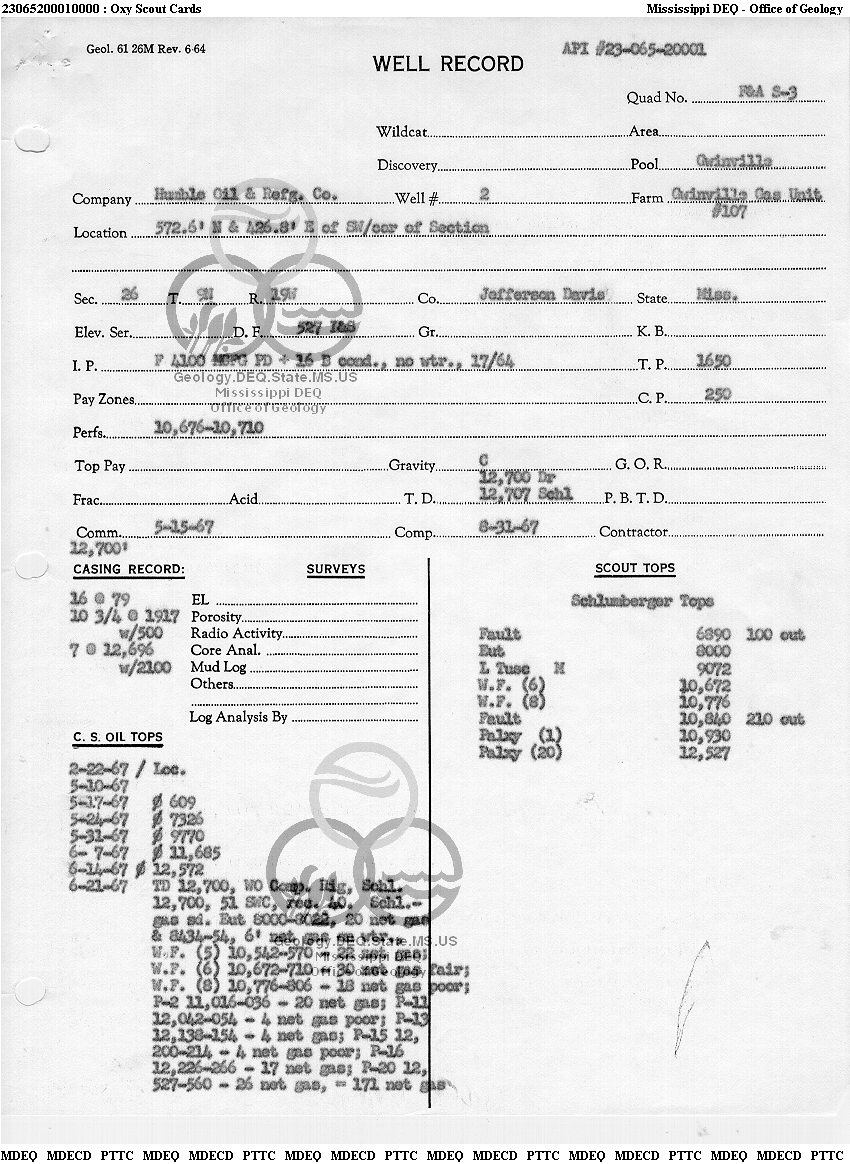 23065200010000 : Oxy Scout Cards Mississippi DEQ - Office of Geology
Geol. 61 26M Rev. 6-64
WELL RECORD API #23-065-20001
Quad No. F&A S-3
Wildcat Area
Discovery Pool Gwinville
Company Humble Oil & Refg. Co. Well # 2 Farm Gwinville Gas Unit
#107
Location 572.6' N & 426.8' E of SW/cor of Section
Sec. 26 T. 9N R. 19W Co. Jefferson Davis State Miss.
Elev. Ser. D. F. 527 Gr. K. B.
I. P. F 4100 MCFG PD + 16 B cond., no wtr., 17/64 T. P. 1650
Geology.DEQ.State.MS.US
Mississippi DEQ
Office of Geology
Pay Zones C. P. 250
Perfs. 10,676-10,710
Top Pay Gravity C G. O. R.
12,700 Dr
Frac. Acid T. D. 12,707 Schl P. B. T. D.
Comm. 5-15-67 Comp. 8-31-67 Contractor
12,700'
CASING RECORD: SURVEYS SCOUT TOPS
16 @ 79
10 3/4 @ 1917
w/500
7 @ 12,696
w/2100
EL
Porosity
Radio Activity
Core Anal.
Mud Log
Others
Log Analysis By
Schlumberger Tops
Fault 6890 100 out
Eut 8000
L Tusc M 9072
W.F. (6) 10,672
W.F. (8) 10,776
Fault 10,840 210 out
Palxy (1) 10,930
Palxy (20) 12,527
C. S. OIL TOPS
2-22-67 / Loc.
5-10-67
5-17-67 Ø 609
5-24-67 Ø 7326
5-31-67 Ø 9770
6- 7-67 Ø 11,685
6-14-67 Ø 12,572
6-21-67 TD 12,700, WO Comp. Rig, Schl.
12,700, 51 SWC, rec. 40. Schl.-
gas sd. Eut 8000-8022, 20 net gas
& 8434-54, 6' net gas on wtr.,
W.F. (5) 10,542-570 - 22 net gas;
W.F. (6) 10,672-710 - 30 net gas fair;
W.F. (8) 10,776-806 - 18 net gas poor;
P-2 11,016-036 - 20 net gas; P-11
12,042-054 - 4 net gas poor; P-13
12,138-154 - 4 net gas; P-15 12,
200-214 - 4 net gas poor; P-16
12,226-266 - 17 net gas; P-20 12,
527-560 - 26 net gas, = 171 net gas
Geology.DEQ.State.MS.US
Mississippi DEQ
Office of Geology
MDEQ MDECD PTTC MDEQ MDECD PTTC MDEQ MDECD PTTC MDEQ MDECD PTTC MDEQ MDECD PTTC MDEQ MDECD PTTC